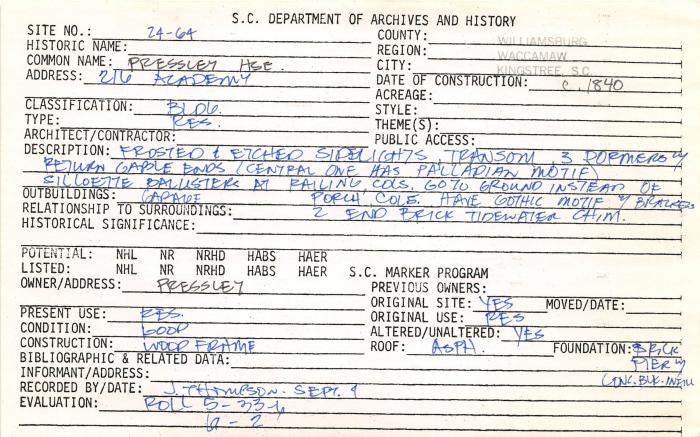 S.C. DEPARTMENT OF ARCHIVES AND HISTORY
SITE NO.: 24-64 COUNTY: WILLIAMSBURG
HISTORIC NAME: REGION: WACCAMAW
COMMON NAME: PRESSLEY HSE CITY: KINGSTREE, S.C.
ADDRESS: 216 ACADEMY DATE OF CONSTRUCTION: c. 1840
ACREAGE:
CLASSIFICATION: BLDG. STYLE:
TYPE: RES. THEME(S):
ARCHITECT/CONTRACTOR: PUBLIC ACCESS:
DESCRIPTION: FROSTED & ETCHED SIDELIGHTS, TRANSOM, 3 DORMERS W/
RETURN GABLE ENDS (CENTRAL ONE HAS PALLADIAN MOTIF)
SILLOETTE BALUSTERS AT RAILING COLS. GO TO GROUND INSTEAD OF
OUTBUILDINGS: GARAGE PORCH. COLS. HAVE GOTHIC MOTIF W/ BRACKETS
RELATIONSHIP TO SURROUNDINGS: 2 END BRICK TIDEWATER CHIM.
HISTORICAL SIGNIFICANCE:
POTENTIAL: NHL NR NRHD HABS HAER
LISTED: NHL NR NRHD HABS HAER S.C. MARKER PROGRAM
OWNER/ADDRESS: PRESSLEY PREVIOUS OWNERS:
ORIGINAL SITE: YES MOVED/DATE:
PRESENT USE: RES. ORIGINAL USE: RES
CONDITION: GOOD ALTERED/UNALTERED: YES
CONSTRUCTION: WOOD FRAME ROOF: ASPH. FOUNDATION: BRCK
BIBLIOGRAPHIC & RELATED DATA: PIER W/
INFORMANT/ADDRESS: CONC. BLK. INFILL
RECORDED BY/DATE: J. THOMPSON. SEPT. 9
EVALUATION: ROLL 5-33-6
6-2